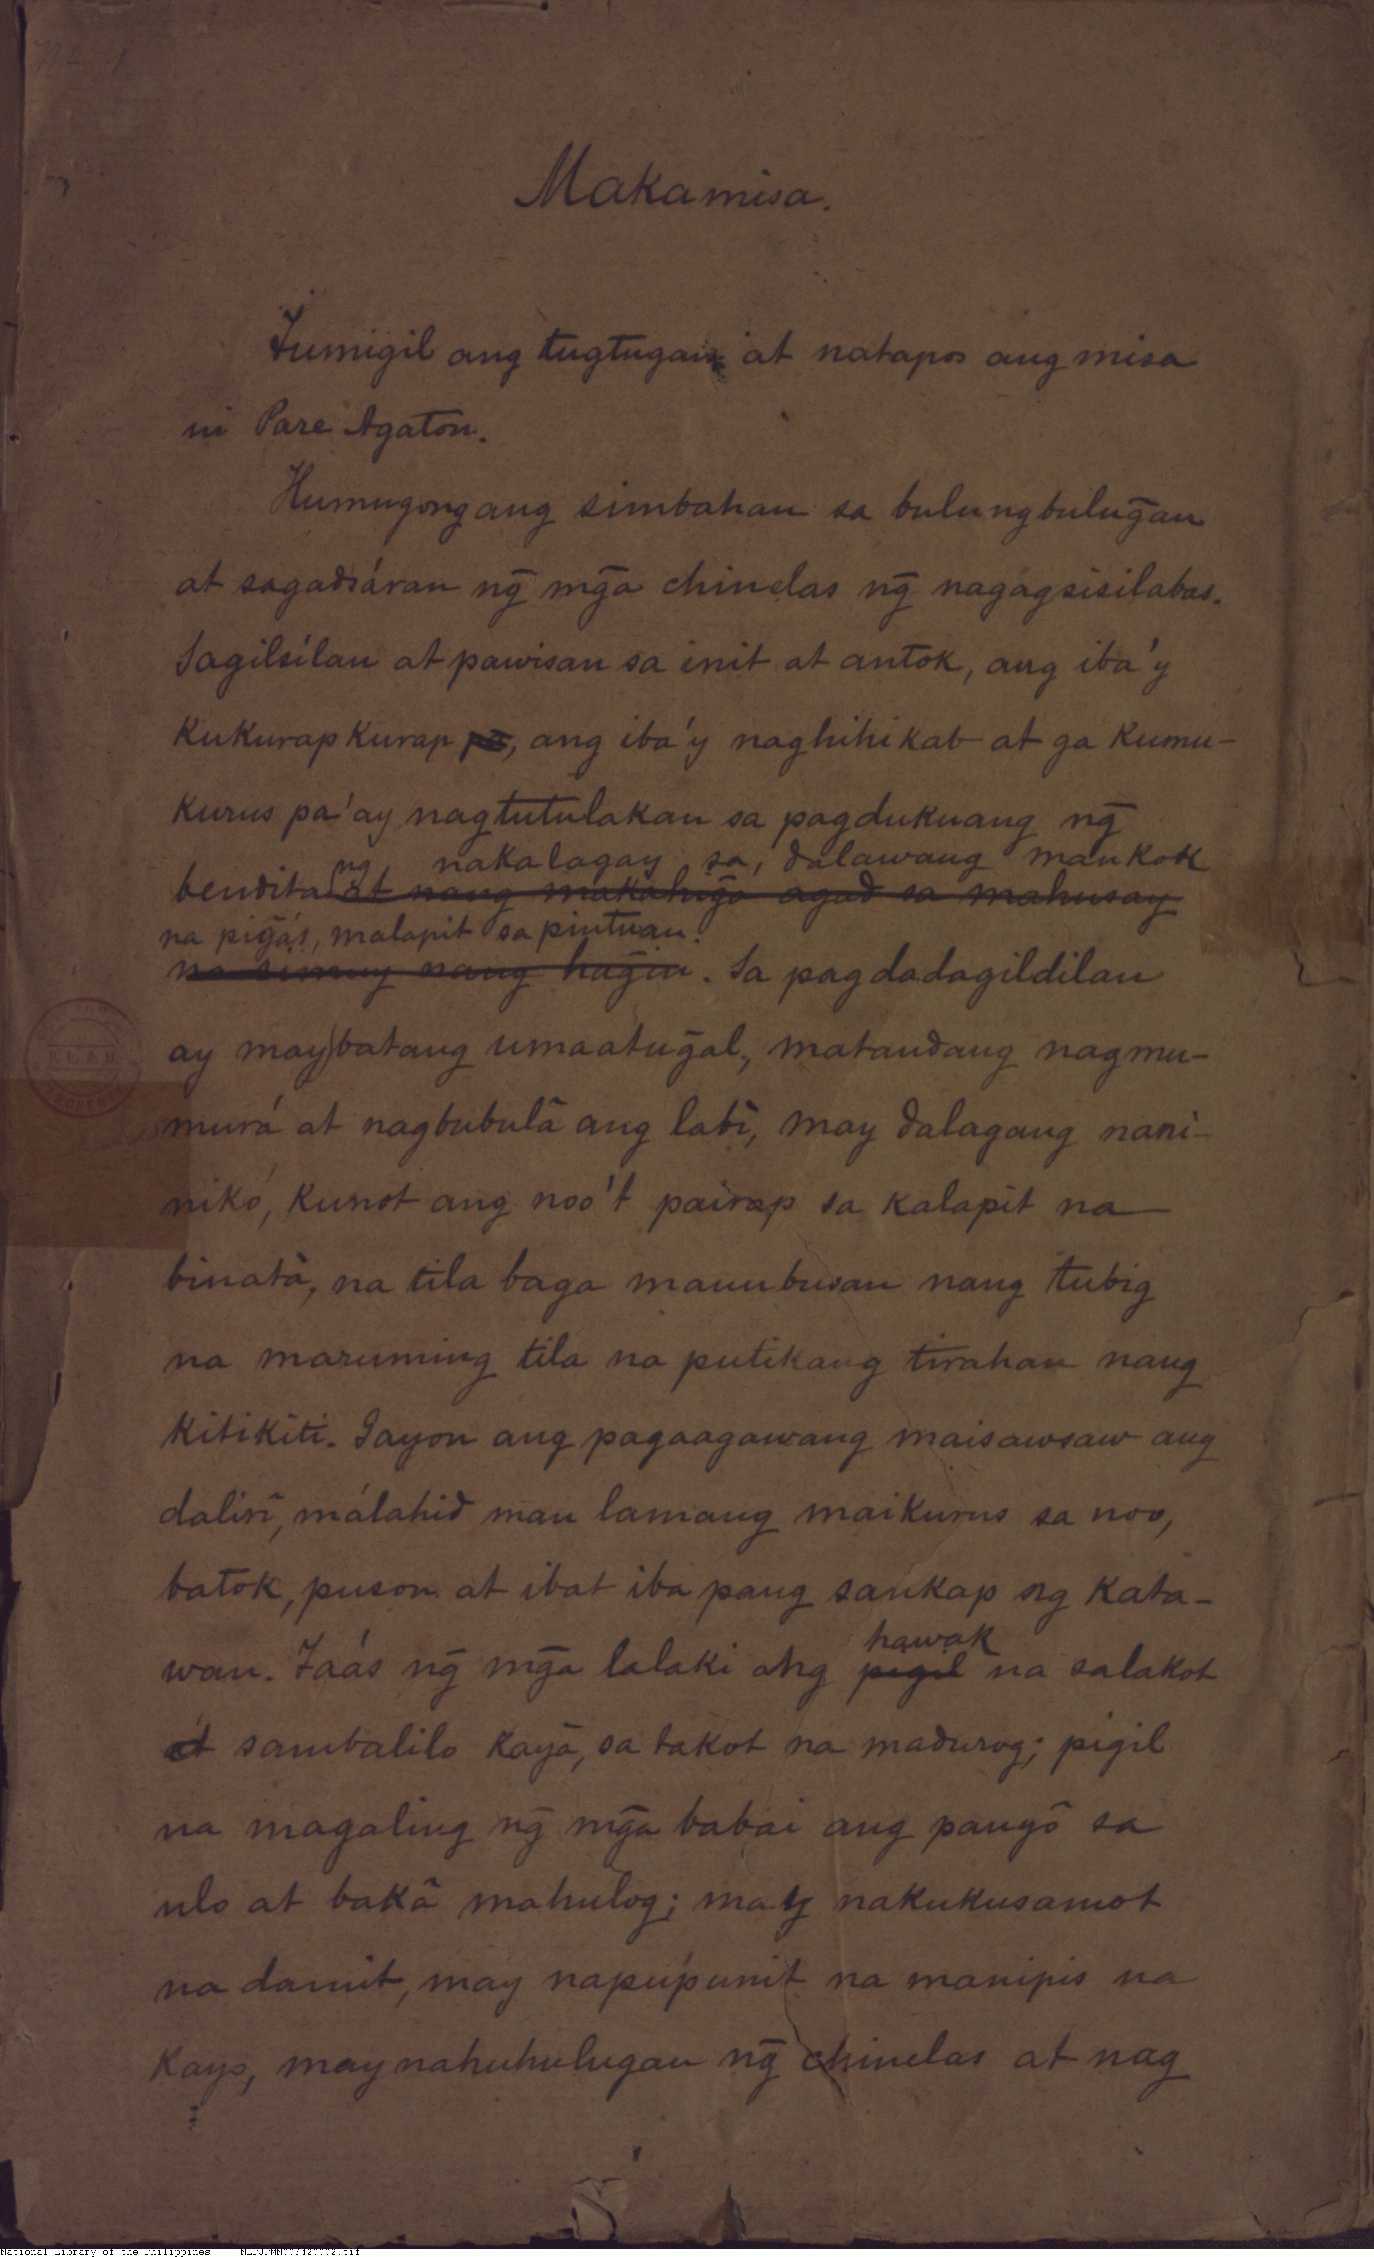 Makamisa.
Tumigil ang tugtugan at natapos ang misa
ni Pare Agaton.
Humugong ang simbahan sa bulungbulug̃an
at sagadsáran ng̃ mg̃a chinelas ng̃ nagagsisilabas.
Sagilsilan at pawisan sa init at antok, ang iba'y
kukurapkurap pa, ang iba'y naghihikab at ga kumu-
kurus pa'ay nagtutulakan sa pagdukuang ng̃
ng nakalagay sa dalawang mankok
bendita at nang makahig̃a agad sa mahusay
na pig̃ás, malapit sa pintuan.
na simuy nang hag̃in. Sa pagdadagildilan
ay may batang umaatug̃al, matandang nagmu-
murá at nagbubulâ ang labì, may dalagang nani-
niko, kunot ang noo't pairap sa kalapit na
binatà, na tila baga mauubusan nang tubig
na maruming tila na putikang tirahan nang
kitikiti. Gayon ang pagaagawang maisawsaw ang
dalirì, málahid man lamang maikurus sa noo,
batok, puson at ibat iba pang sankap ng kata-
hawak
wan. Taás ng̃ mg̃a lalaki ang pigil na salakot
at sambalilo kayâ, sa takot na madurog; pigil
na magaling ng̃ mg̃a babai ang panyô sa
ulo at bakâ mahulog; may nakukusamot
na damit, may napúpunit na manipis na
kayo, may nahuhulugan ng̃ chinelas at nag
National Library of the Philippines